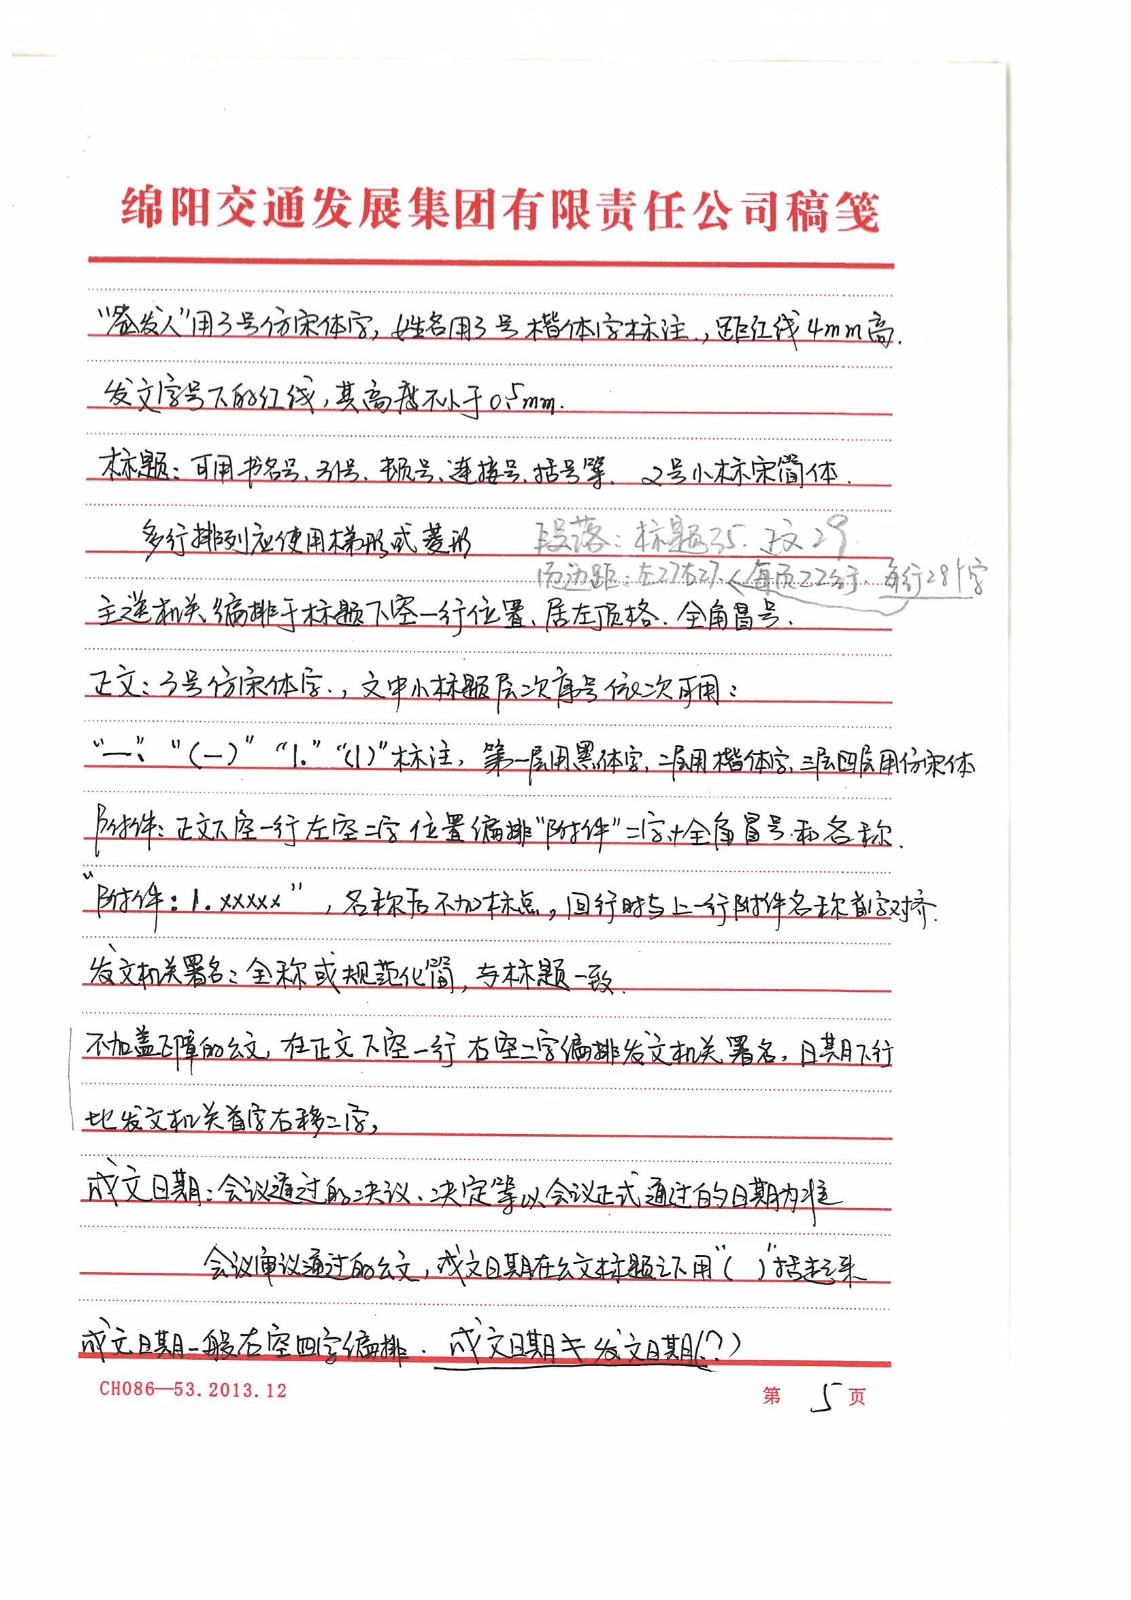 绵阳交通发展集团有限责任公司稿笺
“签发人”用3号仿宋体字，姓名用3号楷体字标注，距红线4mm高.
发文字号下的红线，其高度不小于0.5mm.
标题：可用书名号、引号、顿号、连接号、括号等. 2号小标宋简体.
多行排列应使用梯形或菱形
段落：标题35. 正文29.
页边距：左27右27.<每页22行. 每行28个字
主送机关编排于标题下空一行位置、居左顶格. 全角冒号.
正文：3号仿宋体字.，文中小标题层次序号依次可用：
“一、”“(一)”“1.”“(1)”标注，第一层用黑体字，二层用楷体字，三层四层用仿宋体
附件：正文下空一行左空二字位置编排“附件”二字+全角冒号和名称.
“附件：1.xxxxx”，名称后不加标点，回行时与上一行附件名称首字对齐.
发文机关署名：全称或规范化简，与标题一致.
不加盖印障的公文，在正文下空一行右空二字编排发文机关署名，日期下行
比发文机关首字右移二字，
成文日期：会议通过的决议、决定等以会议正式通过的日期为准
会议审议通过的公文，成文日期在公文标题之下用“（ ）”括起来
成文日期一般右空四字编排. 成文日期≠发文日期(?)
CH086—53.2013.12
第 5 页